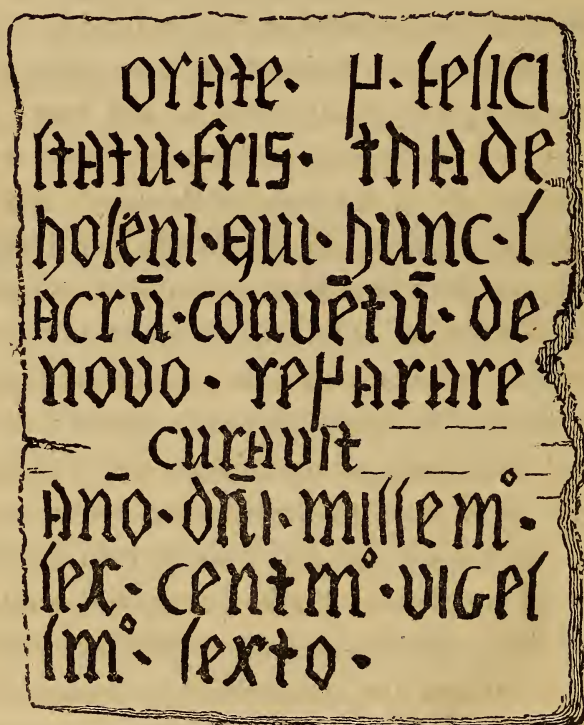 orate· p· felici
statu·fris· thade
holeni·qui·hunc·s
acrū·convētū· de
novo· reparare
curavit
an̄o·dn̄i·millemº·
sex·centmº·viges
smº· sexto·